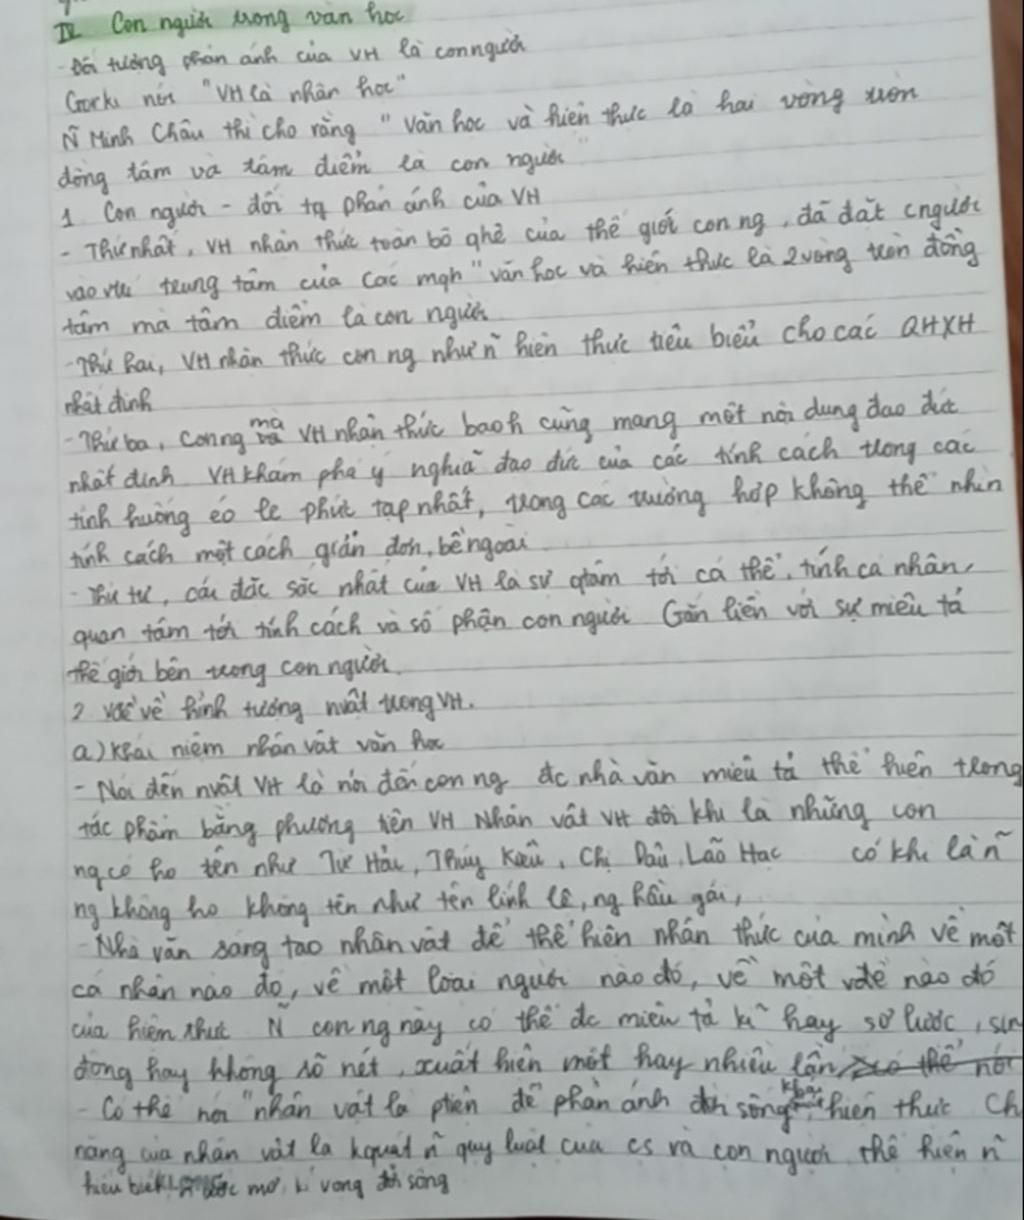 IV Con người trong văn học
- Đối tượng phản ánh của VH là con người
Gorki nói "VH là nhân học"
Ñ Minh Châu thì cho rằng "Văn học và hiện thực là hai vòng tròn
đồng tâm và tâm điểm là con người"
1 Con người - đối tg phản ánh của VH
- Thứ nhất, VH nhận thức toàn bộ qhệ của thế giới con ng, đã đặt cngười
vào vtrí trung tâm của các mqh "văn học và hiện thực là 2 vòng tròn đồng
tâm mà tâm điểm là con người
- Thứ hai, VH nhận thức con ng như ñ hiện thực tiêu biểu cho các QHXH
nhất định
- Thứ ba, con ng mà VH nhận thức bao h cũng mang một nội dung đạo đức
nhất định VH khám phá ý nghĩa đạo đức của các tính cách trong các
tình huống éo le phức tạp nhất, trong các trường hợp không thể nhìn
tính cách một cách giản đơn, bề ngoài
- Thứ tư, cái đặc sắc nhất của VH là sự qtâm tới cá thể, tính cá nhân,
quan tâm tới tính cách và số phận con người Gắn liền với sự miêu tả
thế giới bên trong con người.
2 Vđề về hình tượng nvật trong VH.
a) Khái niệm nhân vật văn học
- Nói đến nvật VH là nói đến con ng đc nhà văn miêu tả thể hiện trong
tác phẩm bằng phương tiện VH Nhân vật VH đôi khi là những con
ng có họ tên như Từ Hải, Thúy Kiều, Chị Dậu, Lão Hạc có khi là ñ
ng không họ không tên như tên lính lệ, ng hầu gái,
- Nhà văn sáng tạo nhân vật để thể hiện nhận thức của mình về một
cá nhân nào đó, về một loại người nào đó, về một vđề nào đó
của hiện thực Ñ con ng này có thể đc miêu tả kĩ hay sơ lược, sin
động hay không rõ nét, xuất hiện một hay nhiều lần, có thể nói
- Có thể nói "nhân vật là ptiện để phản ánh đời sống khái hiện thực Ch
năng của nhân vật là kquát ñ quy luật của cs và con người thể hiện ñ
hiểu biết ước mơ, kì vọng đời sống